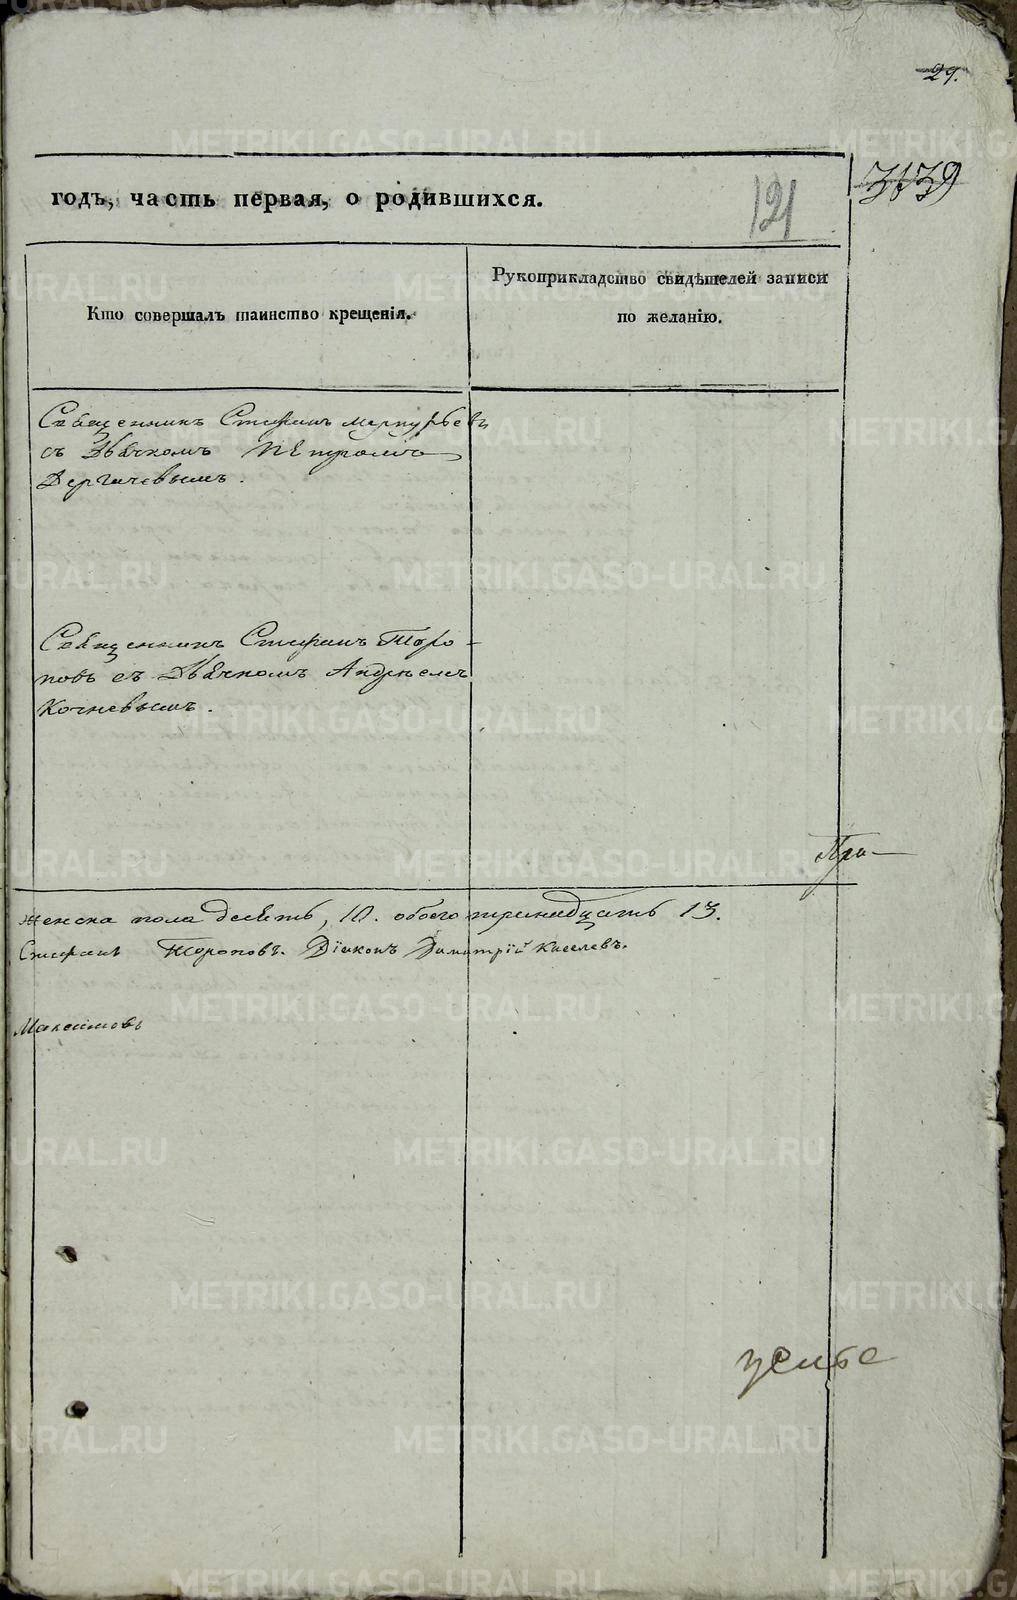 29.
3139
годъ, часть первая, о родившихся.
121
Кто совершалъ таинство крещенія.
Рукоприкладство свидѣтелей записи
по желанію.
Священникъ Стефанъ Меркурьевъ
съ Дьячкомъ Петромъ
Дергачевымъ.
Священникъ Стефанъ Торо-
повъ съ Дьячкомъ Андреемъ
Кочневымъ.
При-
женска пола десять, 10. обоего тринадцать 13.
Стефанъ Тороповъ. Діаконъ Димитрій Киселевъ.
Максимовъ
METRIKI.GASO-URAL.RU